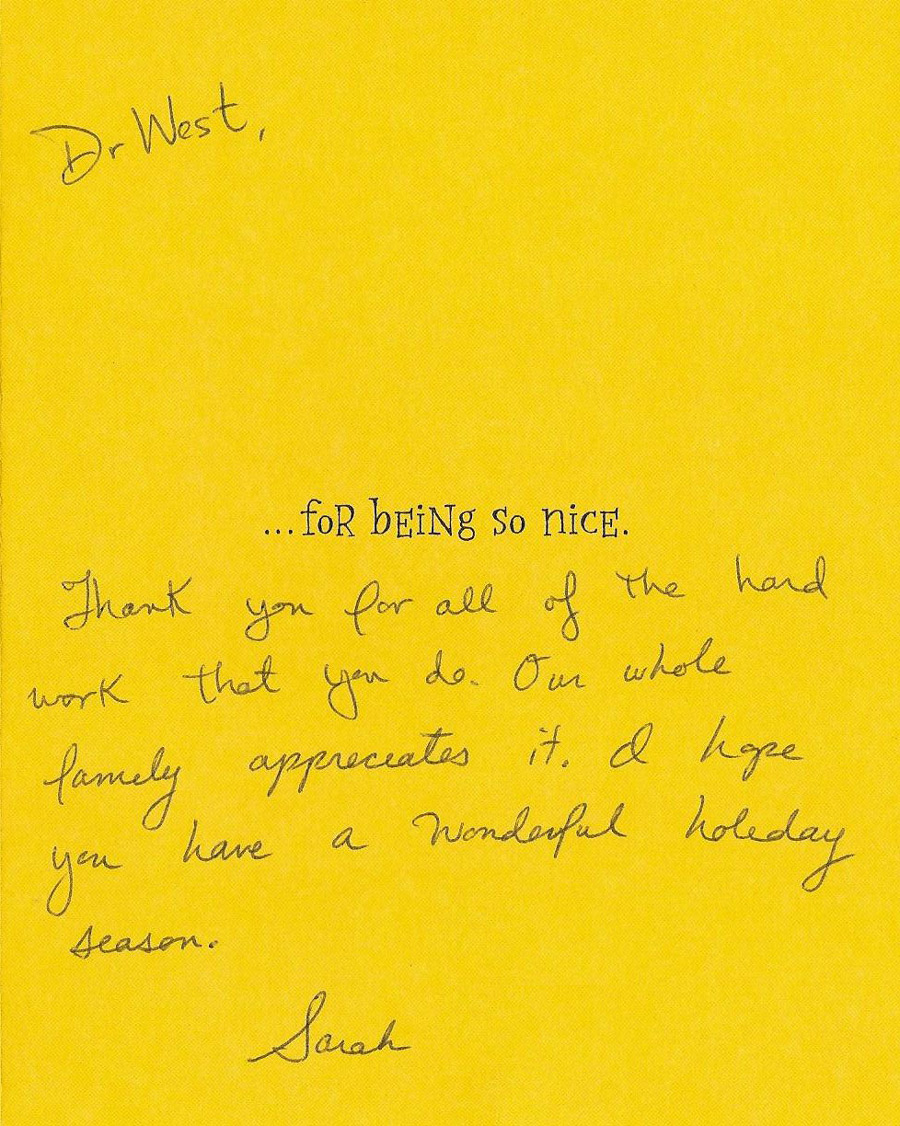 Dr West,
...foR bEiNg so nicE.
Thank you for all of the hard
work that you do. Our whole
family appreciates it. I hope
you have a wonderful holiday
season.
Sarah